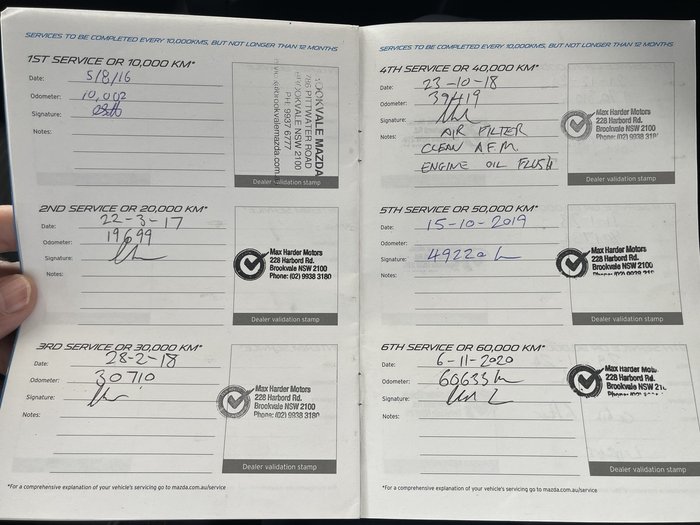 SERVICES TO BE COMPLETED EVERY 10,000KMS, BUT NOT LONGER THAN 12 MONTHS
1ST SERVICE OR 10,000 KM*
Date: 5/8/16
Odometer: 10,002
Signature:
Notes:
BROOKVALE MAZDA
PITTWATER ROAD
BROOKVALE NSW 2100
PH: 9937 6777
Dealer validation stamp
2ND SERVICE OR 20,000 KM*
Date: 22-3-17
Odometer: 19699
Signature:
Notes:
Max Harder Motors
228 Harbord Rd.
Brookvale NSW 2100
Phone: (02) 9938 3180
Dealer validation stamp
3RD SERVICE OR 30,000 KM*
Date: 28-2-18
Odometer: 30710
Signature:
Notes:
Max Harder Motors
228 Harbord Rd.
Brookvale NSW 2100
Phone: (02) 9938 3180
Dealer validation stamp
*For a comprehensive explanation of your vehicle's servicing go to mazda.com.au/service
SERVICES TO BE COMPLETED EVERY 10,000KMS, BUT NOT LONGER THAN 12 MONTHS
4TH SERVICE OR 40,000 KM*
Date: 23-10-18
Odometer: 39419
Signature:
Notes: AIR FILTER
CLEAN AFM
ENGINE OIL FLUSH
Max Harder Motors
228 Harbord Rd.
Brookvale NSW 2100
Phone: (02) 9938 318
Dealer validation stamp
5TH SERVICE OR 50,000 KM*
Date: 15-10-2019
Odometer:
Signature: 49220
Notes:
Max Harder Motors
228 Harbord Rd.
Brookvale NSW 2100
Dealer validation stamp
6TH SERVICE OR 60,000 KM*
Date: 6-11-2020
Odometer: 60633
Signature:
Notes:
Max Harder
228 Harbord Rd.
Brookvale NSW
Dealer validation stamp
*For a comprehensive explanation of your vehicle's servicing go to mazda.com.au/service